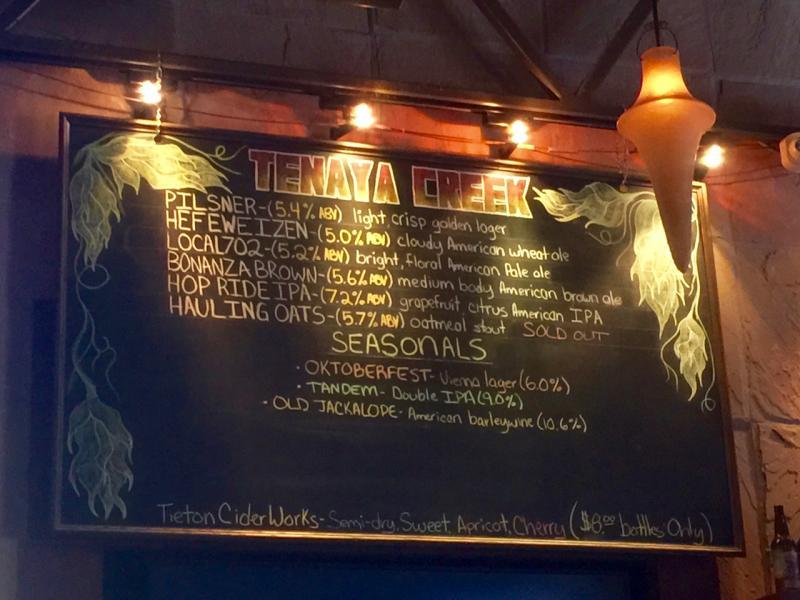 TENAYA CREEK
PILSNER-(5.4% ABV) light crisp golden lager
HEFEWEIZEN-(5.0% ABV) cloudy American wheat ale
LOCAL702-(5.2% ABV) bright, floral American Pale ale
BONANZA BROWN-(5.6% ABV) medium body American brown ale
HOP RIDE IPA-(7.2% ABV) grapefruit, citrus American IPA
HAULING OATS-(5.7% ABV) oatmeal stout SOLD OUT
SEASONALS
• OKTOBERFEST- Vienna lager (6.0%)
• TANDEM- Double IPA (9.0%)
• OLD JACKALOPE- American barleywine (10.6%)
Tieton CiderWorks- Semi-dry, Sweet, Apricot, Cherry ($8.00 bottles Only)